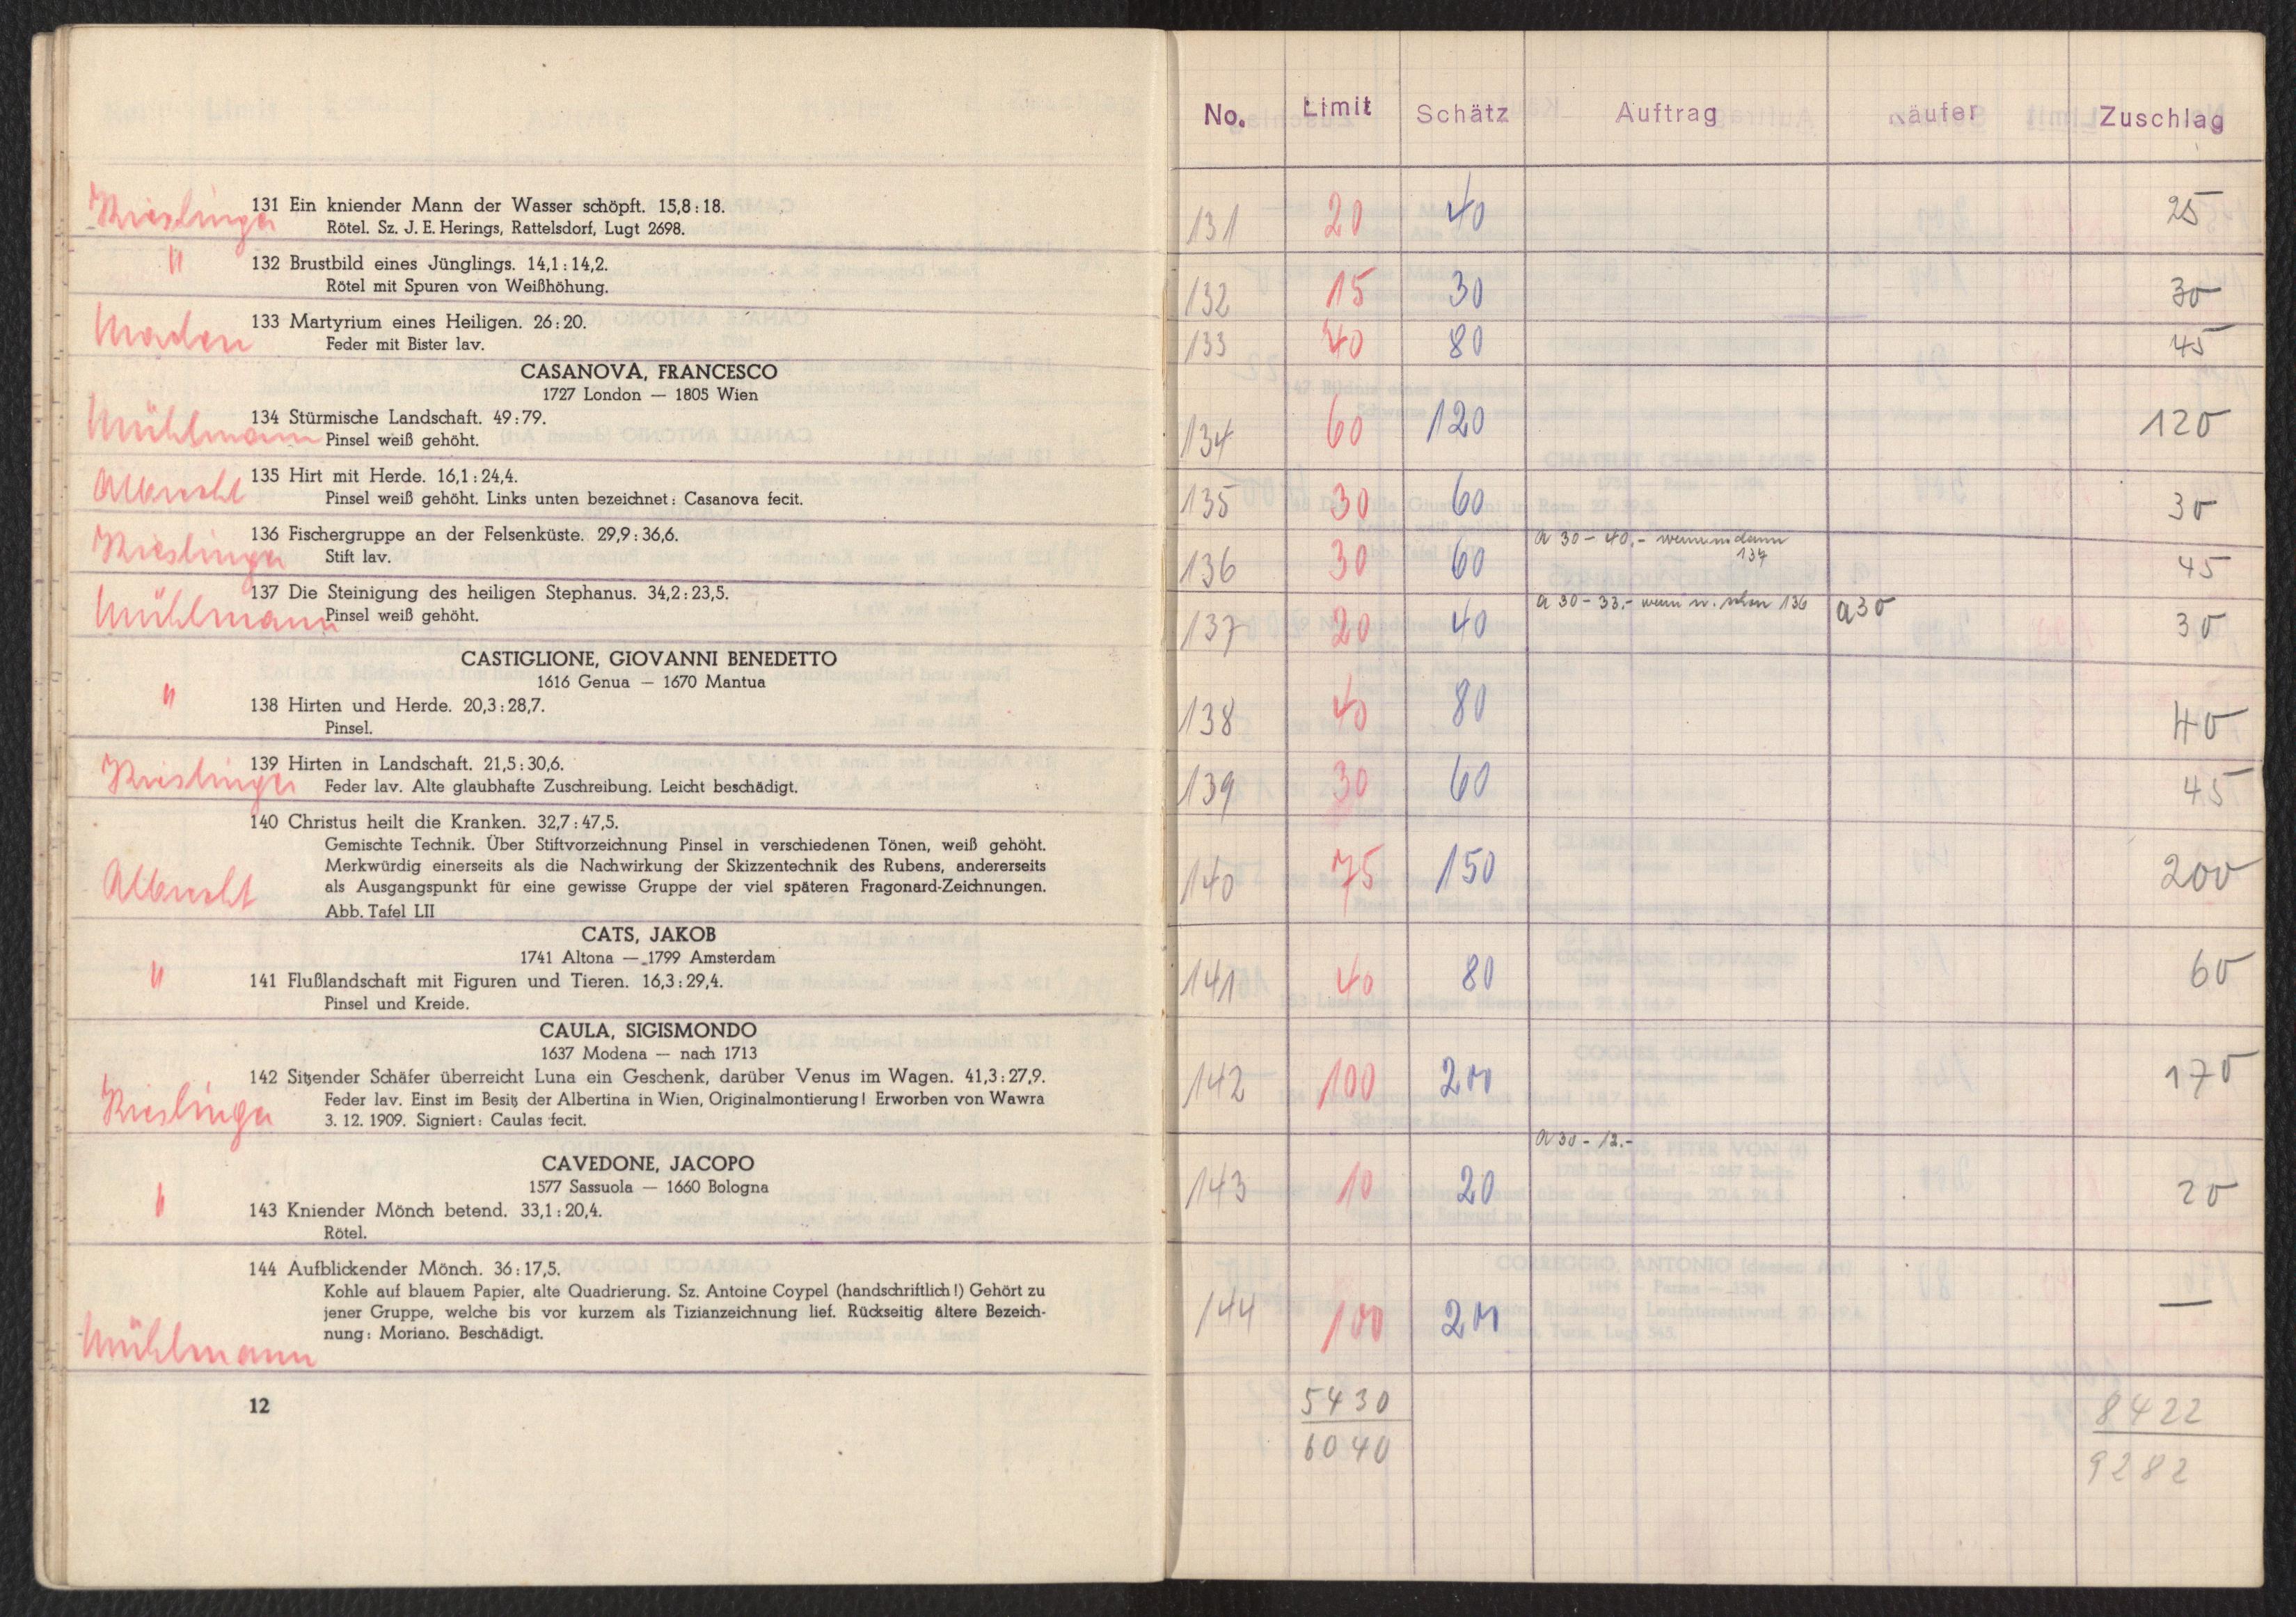 Kieslinger
131 Ein kniender Mann der Wasser schöpft. 15,8 : 18.
Rötel. Sz. J. E. Herings, Rattelsdorf, Lugt 2698.
"
132 Brustbild eines Jünglings. 14,1 : 14,2.
Rötel mit Spuren von Weißhöhung.
133 Martyrium eines Heiligen. 26 : 20.
Feder mit Bister lav.
CASANOVA, FRANCESCO
1727 London — 1805 Wien
Mühlmann
134 Stürmische Landschaft. 49 : 79.
Pinsel weiß gehöht.
Albrecht
135 Hirt mit Herde. 16,1 : 24,4.
Pinsel weiß gehöht. Links unten bezeichnet: Casanova fecit.
Kieslinger
136 Fischergruppe an der Felsenküste. 29,9 : 36,6.
Stift lav.
Mühlmann
137 Die Steinigung des heiligen Stephanus. 34,2 : 23,5.
Pinsel weiß gehöht.
CASTIGLIONE, GIOVANNI BENEDETTO
1616 Genua — 1670 Mantua
"
138 Hirten und Herde. 20,3 : 28,7.
Pinsel.
Kieslinger
139 Hirten in Landschaft. 21,5 : 30,6.
Feder lav. Alte glaubhafte Zuschreibung. Leicht beschädigt.
140 Christus heilt die Kranken. 32,7 : 47,5.
Gemischte Technik. Über Stiftvorzeichnung Pinsel in verschiedenen Tönen, weiß gehöht.
Merkwürdig einerseits als die Nachwirkung der Skizzentechnik des Rubens, andererseits
als Ausgangspunkt für eine gewisse Gruppe der viel späteren Fragonard-Zeichnungen.
Abb. Tafel LII
Albrecht
CATS, JAKOB
1741 Altona — 1799 Amsterdam
"
141 Flußlandschaft mit Figuren und Tieren. 16,3 : 29,4.
Pinsel und Kreide.
CAULA, SIGISMONDO
1637 Modena — nach 1713
142 Sitzender Schäfer überreicht Luna ein Geschenk, darüber Venus im Wagen. 41,3 : 27,9.
Feder lav. Einst im Besitz der Albertina in Wien, Originalmontierung! Erworben von Wawra
3. 12. 1909. Signiert: Caulas fecit.
Kieslinger
CAVEDONE, JACOPO
1577 Sassuola — 1660 Bologna
"
143 Kniender Mönch betend. 33,1 : 20,4.
Rötel.
144 Aufblickender Mönch. 36 : 17,5.
Kohle auf blauem Papier, alte Quadrierung. Sz. Antoine Coypel (handschriftlich!) Gehört zu
jener Gruppe, welche bis vor kurzem als Tizianzeichnung lief. Rückseitig ältere Bezeich-
nung: Moriano. Beschädigt.
Mühlmann
12
No. Limit Schätz Auftrag Käufer Zuschlag
131 20 40 25
132 15 30 30
133 40 80 45
134 60 120 120
135 30 60 30
a 30 - 40.-
137
136 30 60 45
a 30 - 33.- wenn n. schon 136 a 30
137 20 40 30
138 40 80 40
139 30 60 45
140 75 150 200
141 40 80 60
142 100 200 170
a 30 - 12.-
143 10 20 20
144 100 200 —
5430 8422
6040 9282